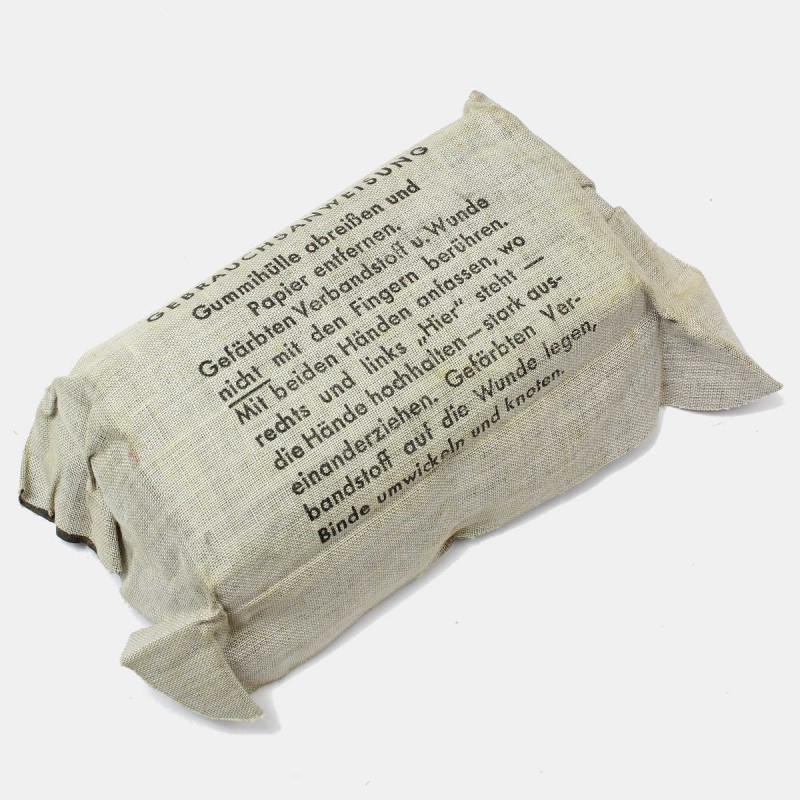 GEBRAUCHSANWEISUNG
Gummihülle abreißen und
Papier entfernen.
Gefärbten Verbandstoff u. Wunde
nicht mit den Fingern berühren.
Mit beiden Händen anfassen, wo
rechts und links „Hier" steht —
die Hände hochhalten — stark aus-
einanderziehen. Gefärbten Ver-
bandstoff auf die Wunde legen,
Binde umwickeln und knoten.